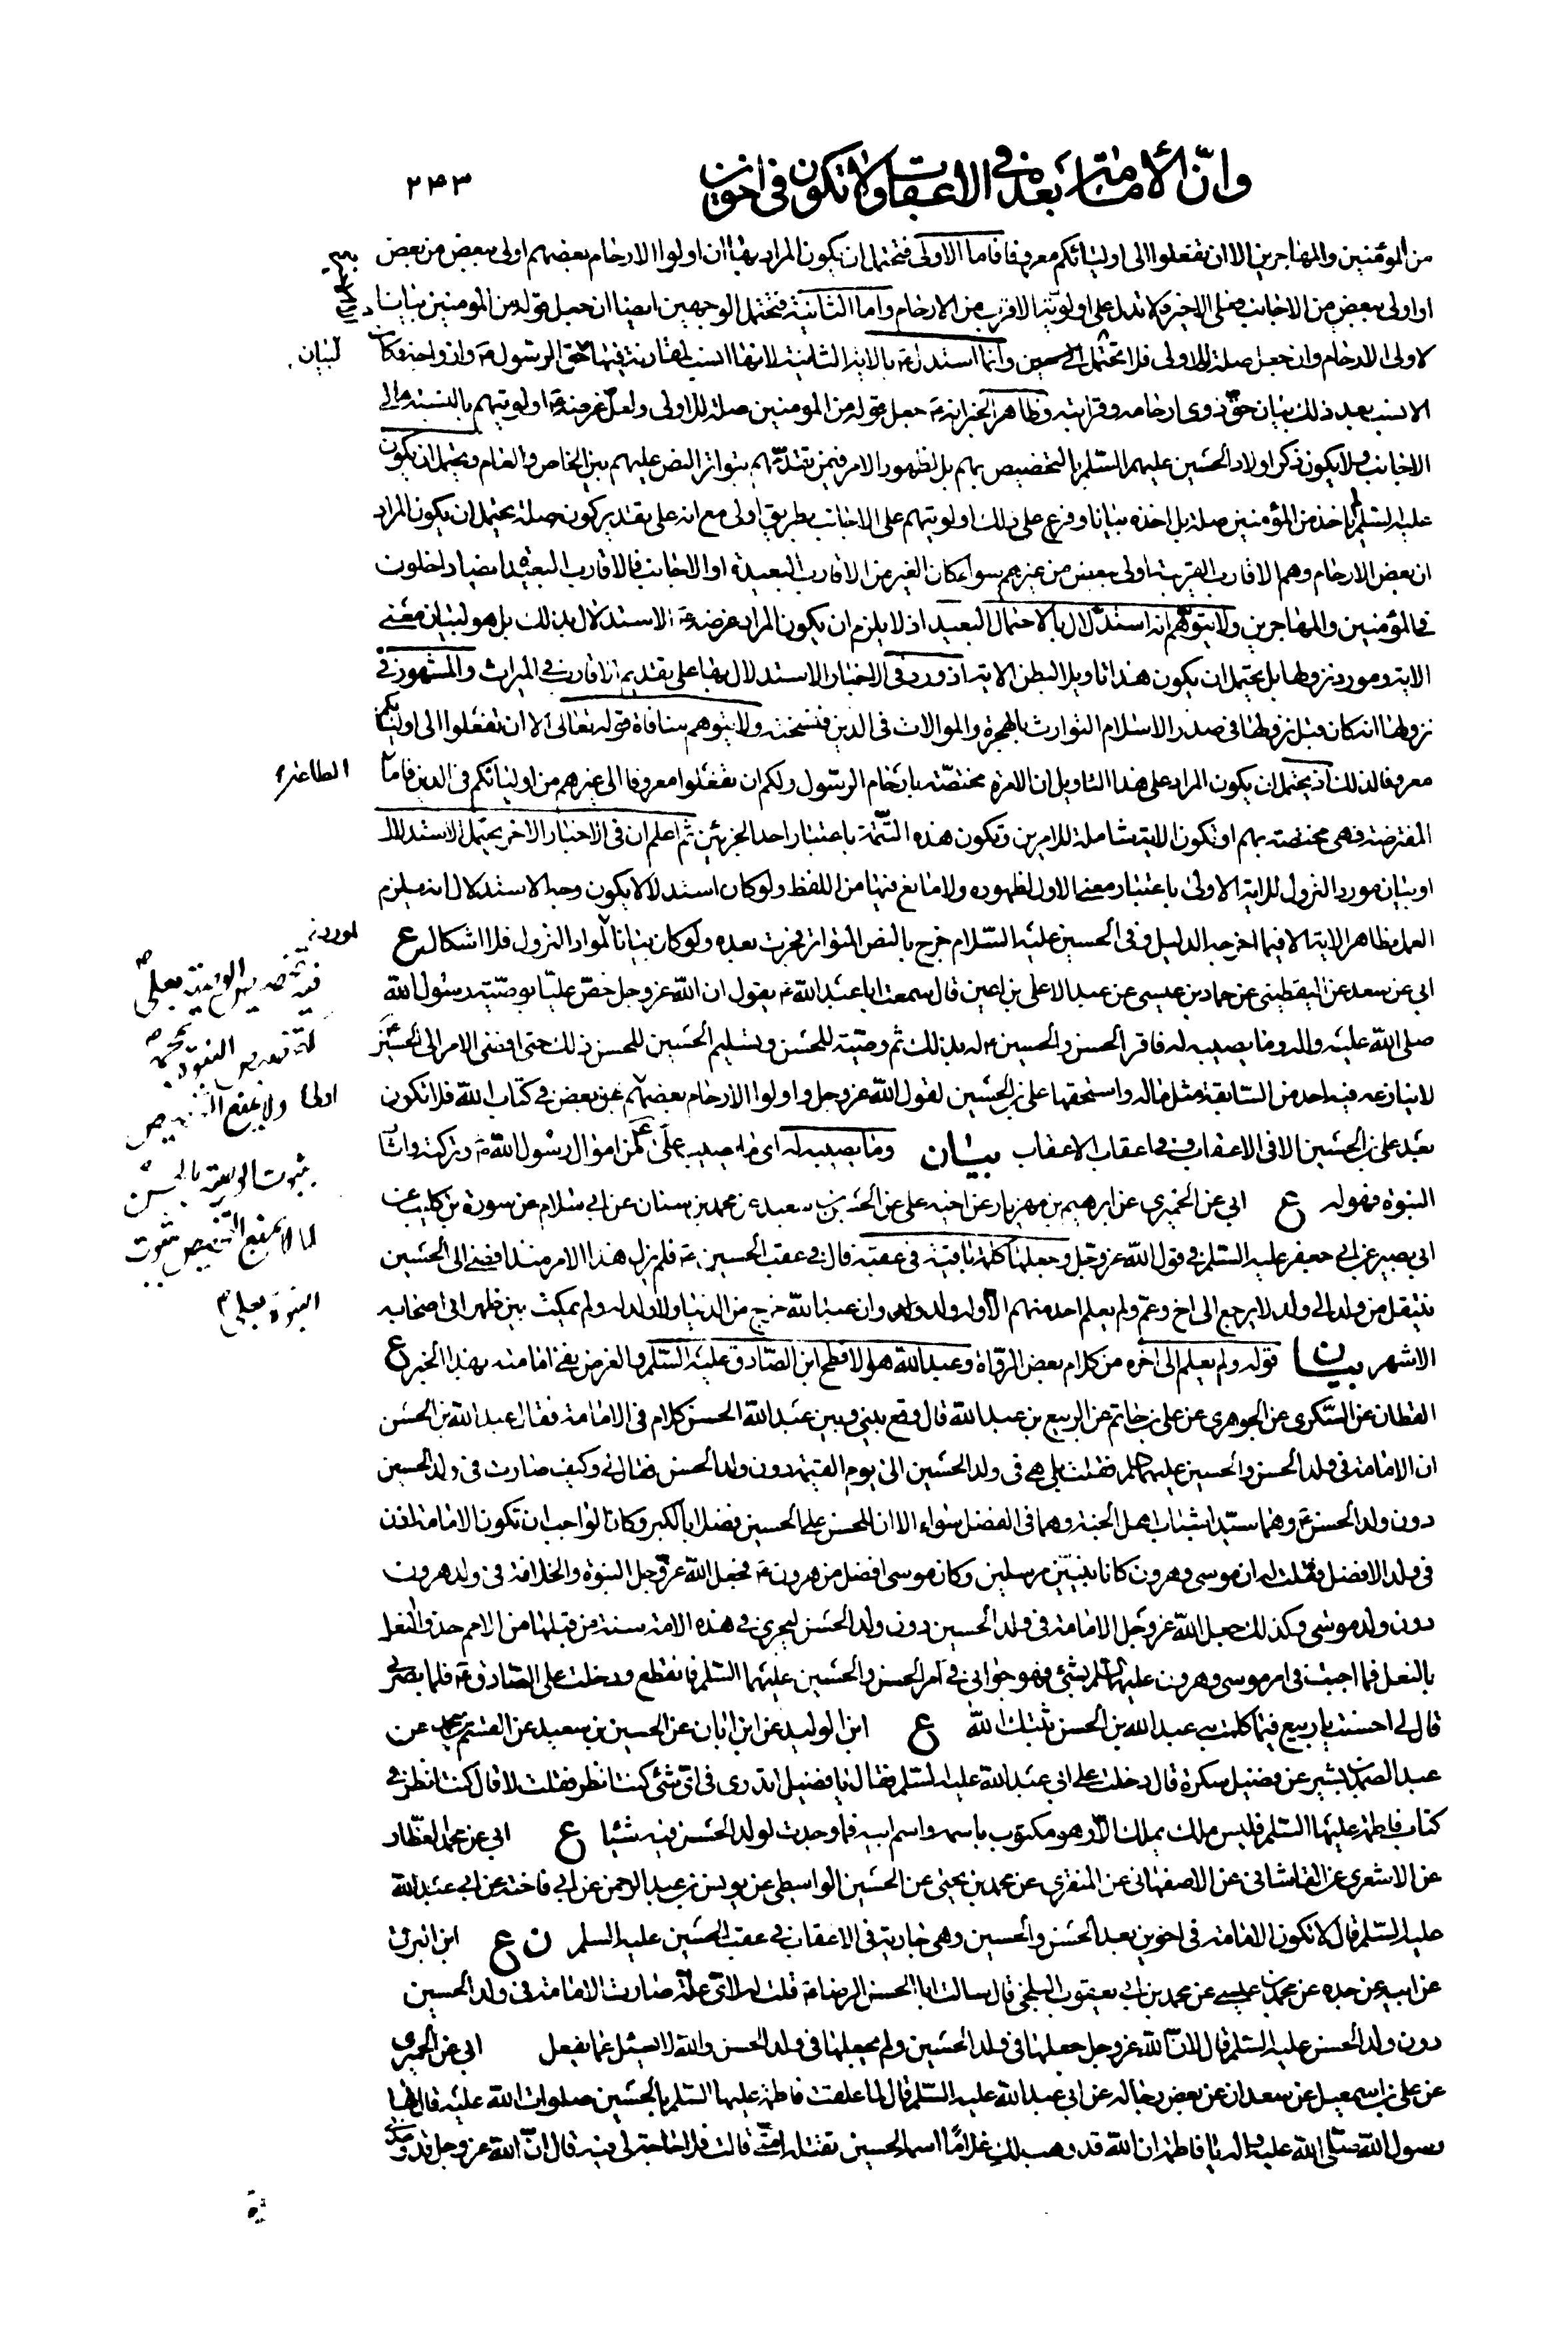 وانّ الأمامة بعده في الاعقاب ولا تكون في اخوين
۲۴۳
من المؤمنين والمهاجرين الا ان تفعلوا الى اوليائكم معروفا فاما الاولى فتحتمل ان يكون المراد بها ان اولوا الارحام بعضهم اولى ببعض من بعض
او اولى ببعض من الاجانب فعلى الاخير لا تدل على اولوية الاقرب من الارحام واما الثانية فتحتمل الوجهين ايضا ان جعل قوله من المؤمنين بيانا
لاولى الارحام وان جعل صلة للاولى فلا تحتمل الا الاخير وانما استدل ع بالاية الثانية لانها انسب لمقارنة فيها حق الرسول ص وازواجه فكان
لبيان
الانسب بعد ذلك بيان حق ذوى ارحامه وقرابته وظاهر الخبر انه ع جعل قوله من المومنين صلة للاولى ولعل غرضه ع اولويتهم بالنسبة الى
الاجانب ولا يكون ذكر اولاد الحسين عليهم السلم بالتخصيص بهم بل لظهور الامر فيمن تقدمهم بتواتر النص عليهم بين الخاص والعام ويحتمل ان يكون
عليه السلم لم ياخذ من المؤمنين صلة بل اخذه بيانا وفرع على ذلك اولويتهم على الاجانب بطريق اولى مع انه على تقدير كونه صلة يحتمل ان يكون المراد
ان بعض الارحام وهم الاقارب القريبة اولى ببعض من غيرهم سواء كان الغير من الاقارب البعيدة او الاجانب فالاقارب البعيدة ايضا داخلون
في المؤمنين والمهاجرين ولا يتوهم انه استدلال بالاحتمال البعيد اذ لا يلزم ان يكون المراد غرضه ع الاستدلال بذلك بل هو لبيان معنى
الاية ومورد نزولها بل يحتمل ان يكون هذا تاويلا لبطن الاية اذ ورد فى الاخبار الاستدلال بها على تقديم الاقارب فى الميراث والمشهور فى
نزولها انه كان قبل نزولها فى صدر الاسلام التوارث بالهجرة والموالات فى الدين فنسخته ولا يتوهم منافاة قوله تعالى الا ان تفعلوا الى اوليائكم
معروفا لذلك اذ يحتمل ان يكون المراد على هذا التاويل ان الامرة مختصة بارحام الرسول ولكم ان تفعلوا معروفا الى غيرهم من اوليائكم فى الدين فاما
الطاعة
المفترضة فهى مختصة بهم او تكون الاية شاملة للامرين وتكون هذه التتمة باعتبار احد الجزئين ثم اعلم ان فى الاخبار الاخر يحتمل الاستدلال
او بيان مورد النزول للاية الاولى باعتبار معنى الاول لظهوره ولا مانع فيها من اللفظ ولو كان استدلالا يكون وجه الاستدلال انه يلزم
العمل بظاهر الاية الا فيما اخرجه الدليل وفى الحسين عليه السلام خرج بالنص المتواتر فجرت بعده ولو كان بيانا لمواد النزول فلا اشكال ع
ابى عن سعد عن اليقطينى عن حماد بن عيسى عن عبد الاعلى بن اعين قال سمعت ابا عبد الله ع يقول ان الله عز وجل خص عليا بوصية رسول الله
صلى الله عليه واله وما يصيبه له فاقر الحسن والحسين ع له بذلك ثم وصيته للحسن وتسليم الحسين للحسن ذلك حتى افضى الامر الى الحسين
لا ينازعه فيه احد من السابقة مثل ماله واستحقها على بن الحسين لقول الله عز وجل واولوا الارحام بعضهم اولى ببعض في كتاب الله فلا تكون
بعد على بن الحسين الا فى الاعقاب وفى اعقاب الاعقاب بيان وما يصيبه له اى ما يصيب على ع من اموال رسول الله ص وتركته واثاث
النبوة فهو له ع ابى عن الحميرى عن ابرهيم بن مهزيار عن اخيه على عن الحسين بن سعيد عن محمد بن سنان عن ابى سلام عن سورة بن كليب عن
ابى بصير عن ابى جعفر عليه السلم فى قول الله عز وجل وجعلها كلمة باقية فى عقبه قال فى عقب الحسين ع فلم يزل هذا الامر منذ افضى الى الحسين
ينتقل من ولد الى ولد لا يرجع الى اخ وعم ولم يعلم احد منهم الا وله ولد وان عبد الله خرج من الدنيا ولا ولد له ولم يمكث بين ظهرانى اصحابه
الا شهر بيان قوله ولم يعلم الى اخره من كلام بعض الرواة وعبد الله هو الافطح ابن الصادق عليه السلم والغرض نفى امامته بهذا الخبر ع
القطان عن السكرى عن الجوهرى عن على بن حاتم عن الربيع بن عبد الله قال وقع بينى وبين عبد الله الحسن كلام فى الامامة فقال عبد الله بن الحسن
ان الامامة فى ولد الحسن والحسين عليهما السلم فقلت بلى هى فى ولد الحسين الى يوم القيمة دون ولد الحسن فقال لى وكيف صارت فى ولد الحسين
دون ولد الحسن ع وهما سيدا شباب اهل الجنة وهما فى الفضل سواء الا ان للحسن على الحسين فضلا بالكبر وكان الواجب ان تكون الامامة اذن
فى ولد الافضل فقلت له ان موسى وهرون كانا نبيين مرسلين وكان موسى افضل من هرون ع فجعل الله عز وجل النبوة والخلافة فى ولد هرون
دون ولد موسى وكذلك جعل الله عز وجل الامامة فى ولد الحسين دون ولد الحسن ليجرى فى هذه الامة سنة من قبلها من الامم حذو النعل
بالنعل فما اجبت فى امر موسى وهرون عليهما السلم بشئ فهو جوابى فى امر الحسن والحسين عليهما السلم فانقطع ودخلت على الصادق ع فلما بصر بى
قال لى احسنت يا ربيع فيما كلمت به عبد الله بن الحسن ثبتك الله ع ابن الوليد عن ابن ابان عن الحسين بن سعيد عن القسم بن محمد عن
عبد الصمد بن بشير عن فضيل سكرة قال دخلت على ابى عبد الله عليه السلم فقال يا فضيل اتدرى فى اى شئ كنت انظر فقلت لا قال كنت انظر فى
كتاب فاطمة عليها السلم فليس ملك يملك الا وهو مكتوب باسمه واسم ابيه فما وجدت لولد الحسن فيه شيئا ع ابى عن محمد العطار
عن الاشعرى عن القاشانى عن الاصفهانى عن المنقرى عن محمد بن يحيى عن الحسين الواسطى عن يونس بن عبد الرحمن عن ابى فاختة عن ابى عبد الله
عليه السلم قال لا تكون الامامة فى اخوين بعد الحسن والحسين وهى جارية فى الاعقاب فى عقب الحسين عليه السلم ن ع ابن البرقى
عن ابيه عن جده عن محمد بن عيسى عن محمد بن ابى يعقوب البلخى قال سالت ابا الحسن الرضا ع قلت له لاى علة صارت الامامة فى ولد الحسين
دون ولد الحسن عليه السلم قال لان الله عز وجل جعلها فى ولد الحسين ولم يجعلها فى ولد الحسن والله لا يسئل عما يفعل ابى عن الحميرى
عن على بن اسمعيل عن سعدان عن بعض رجاله عن ابى عبد الله عليه السلم قال لما علقت فاطمة عليها السلم بالحسين صلوات الله عليه قال لها
رسول الله صلى الله عليه واله يا فاطمة ان الله قد وهب لك غلاما اسمه الحسين تقتله امتى قالت فلا حاجة لى فيه قال ان الله عز وجل قد وعدنى